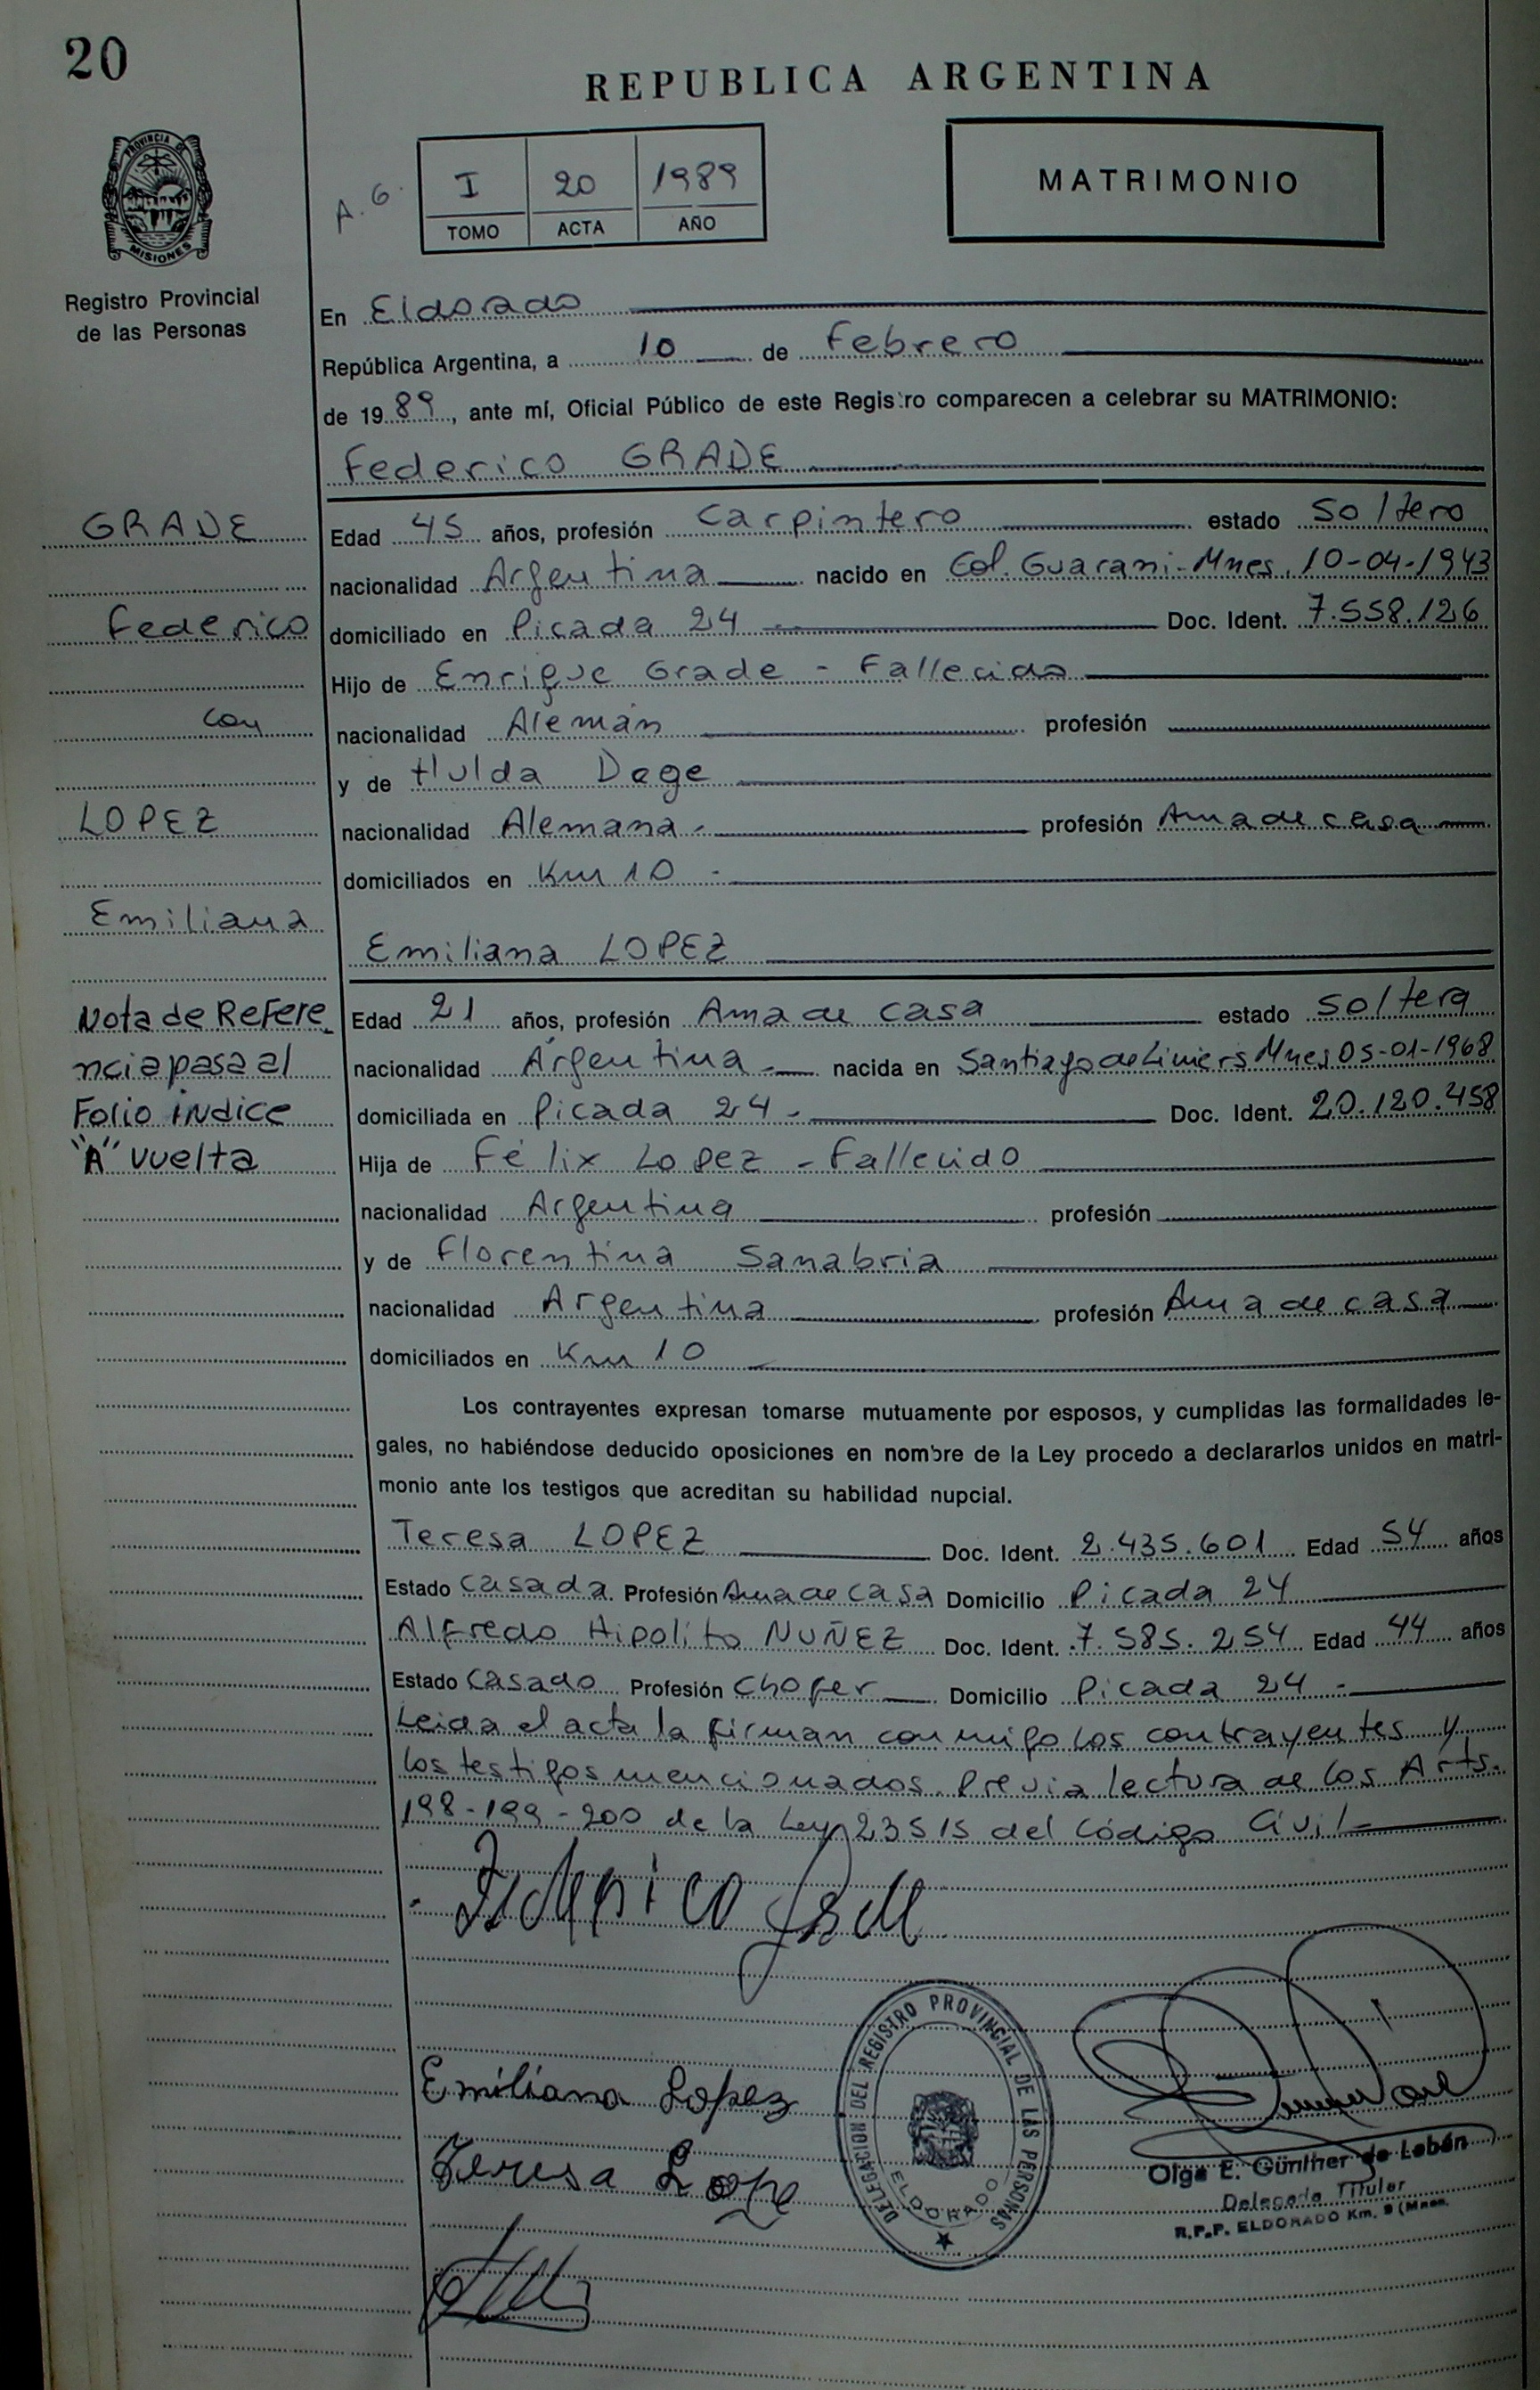 20
REPUBLICA ARGENTINA
PROVINCIA DE
MISIONES
Registro Provincial
de las Personas
A. G.
I 20 1989
TOMO ACTA AÑO
MATRIMONIO
En Eldorado
República Argentina, a 10 de Febrero
de 19 89, ante mí, Oficial Público de este Registro comparecen a celebrar su MATRIMONIO:
Federico GRADE
GRADE
Federico
con
LOPEZ
Emiliana
Nota de Refere
ncia pasa al
Folio indice
"A" vuelta
Edad 45 años, profesión Carpintero estado Soltero
nacionalidad Argentina nacido en Col. Guarani - Mnes. 10-04-1943
domiciliado en Picada 24 Doc. Ident. 7.558.126
Hijo de Enrique Grade - Fallecido
nacionalidad Alemán profesión
y de Hulda Dege
nacionalidad Alemana - profesión Ama de casa
domiciliados en Km 10 -
Emiliana LOPEZ
Edad 21 años, profesión Ama de casa estado Soltera
nacionalidad Argentina - nacida en Santiago de Liniers Mnes 05-01-1968
domiciliada en Picada 24 - Doc. Ident. 20.120.458
Hija de Félix Lopez - Fallecido
nacionalidad Argentina profesión
y de Florentina Sanabria
nacionalidad Argentina profesión Ama de casa
domiciliados en Km 10
Los contrayentes expresan tomarse mutuamente por esposos, y cumplidas las formalidades le-
gales, no habiéndose deducido oposiciones en nombre de la Ley procedo a declararlos unidos en matri-
monio ante los testigos que acreditan su habilidad nupcial.
Teresa LOPEZ Doc. Ident. 2.435.601 Edad 54 años
Estado Casada Profesión Ama de casa Domicilio Picada 24
Alfredo Hipolito NUÑEZ Doc. Ident. 7.585.254 Edad 44 años
Estado Casado Profesión Chofer Domicilio Picada 24 -
Leida el acta la firman conmigo los contrayentes y
los testigos mencionados. Previa lectura de los Arts.
198-199-200 de la Ley 23515 del Código Civil
Federico Grade
Emiliana Lopez
Teresa Lope
DELEGACION DEL REGISTRO PROVINCIAL DE LAS PERSONAS
ELDORADO
Olga E. Günther de Lebán
Delegada Titular
R.P.P. ELDORADO Km. 9 (Mnes.